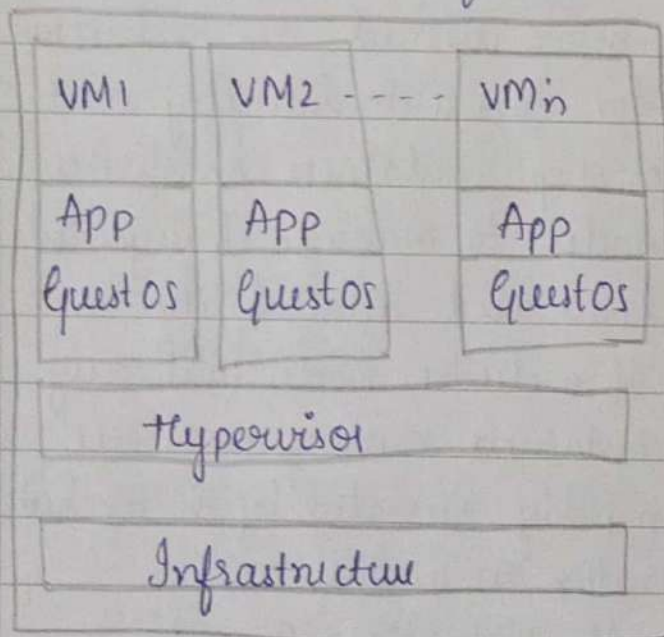 VM1 VM2 ---- VMn
App App App
Guest OS Guest OS Guest OS
Hypervisor
Infrastructure